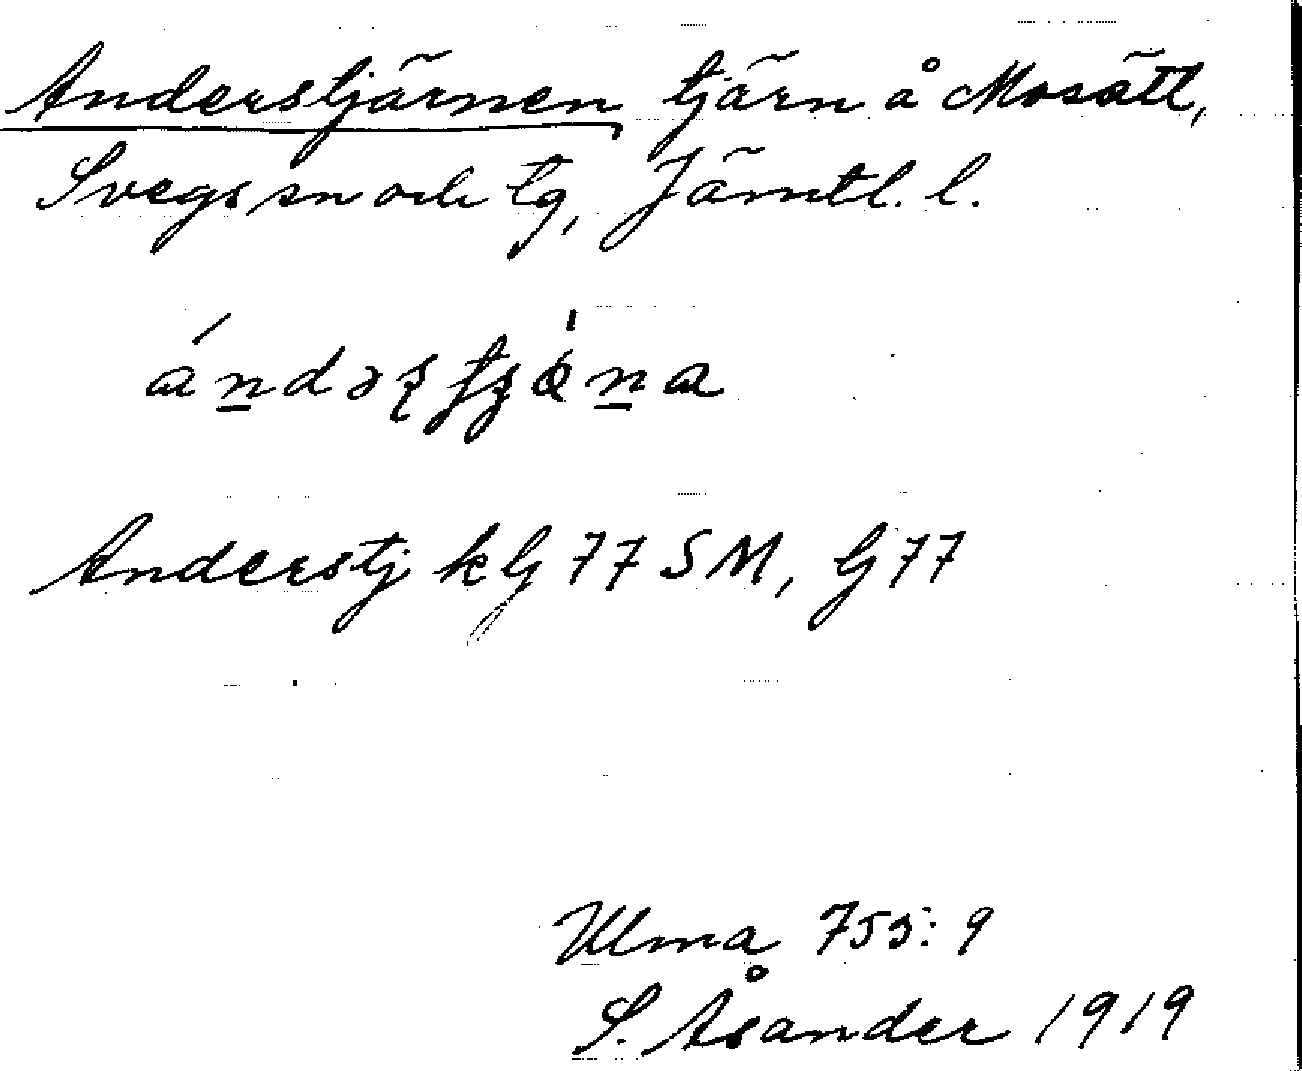 Anderstjärnen tjärn å Mosätt,
Svegs sn och tg, Jämtl. l.
Anderstj k G 77 SM, G 77
Ulma 755: 9
S. Åsander 1919